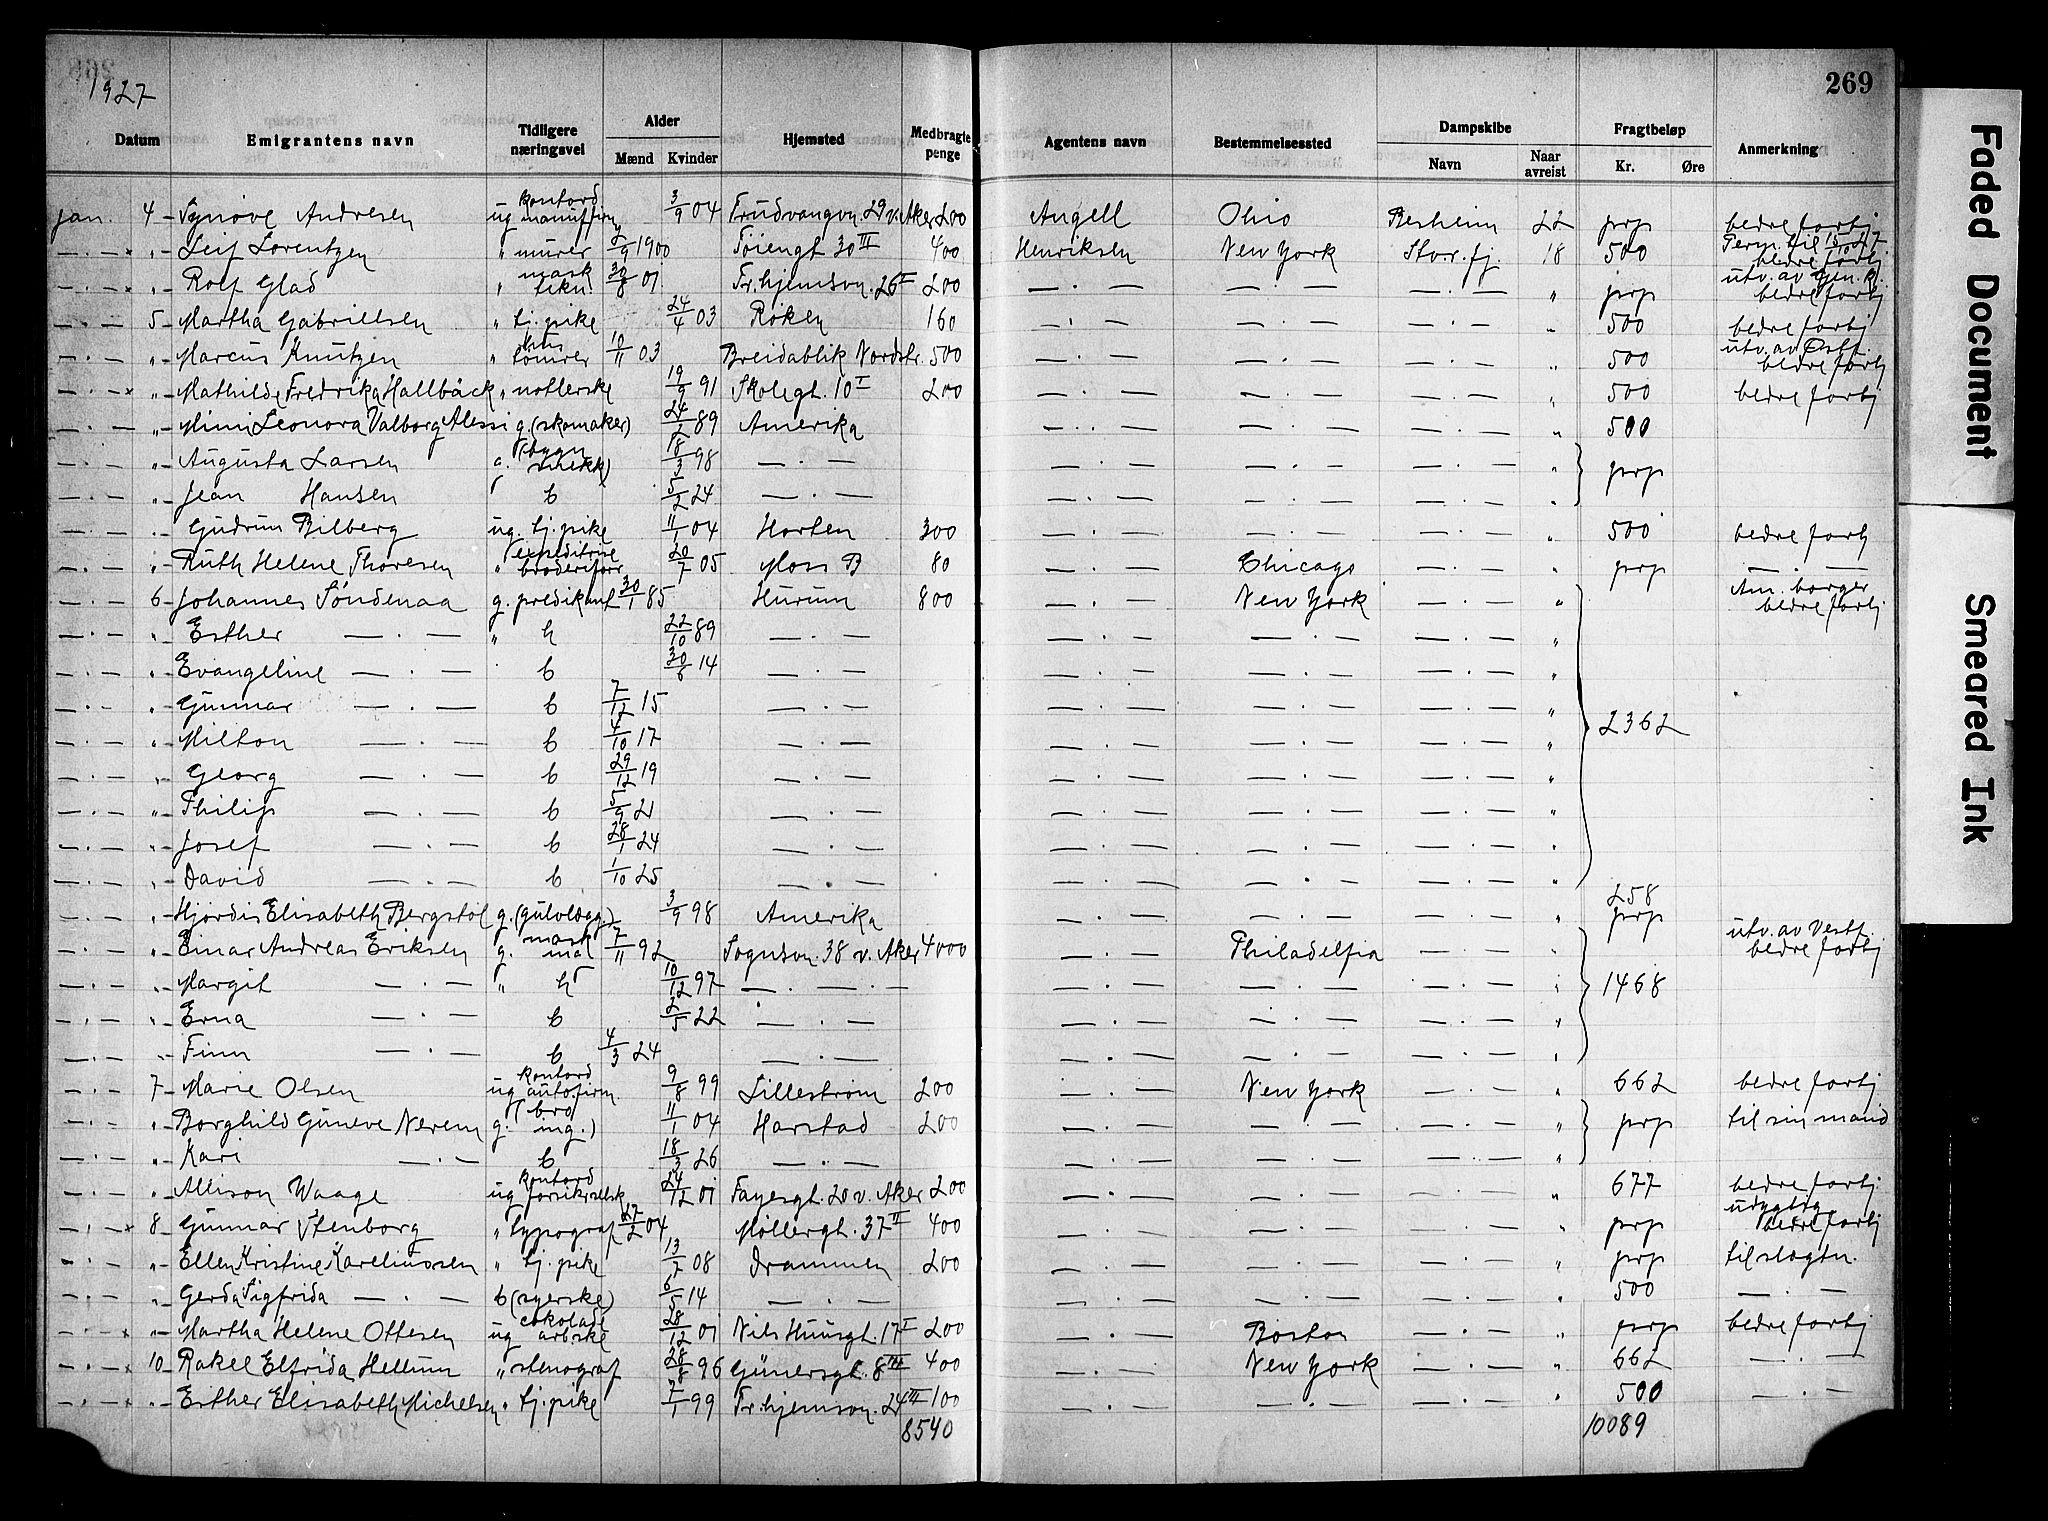 1927
269
Datum Emigrantens navn Tidligere næringsvei Alder Mænd Kvinder Hjemsted Medbragte penge Agentens navn Bestemmelsessted Dampskibe Navn Naar avreist Fragtbeløp Kr. Øre Anmerkning
jan. 4 Synöve Andresen ug kontord manuffirm 3/9 04 Trudvangvn. 29 v. Aker 200 Angell Ohio Besheim 22 prp bedre fortj
— . — " Leif Lorentzen " murer 2/9 1900 Töiengt 30 III 400 Henriksen New York Stav.fj. 18 500 Perm. til 15/10 27 bedre fortj
— . — × " Rolf Glad " mask tekn. 30/8 01 Tr.hjemsvn. 26 I 200 — . — — . — — . — " prp utv. av Gen.k. bedre fortj
— . — 5 Martha Gabrielsen " tj. pike 24/4 03 Röken 160 — . — — . — — . — " 500 bedre fortj
— . — " Marcus Knutzen " hus tömrer 10/11 03 Breidablik Nordstr. 500 — . — — . — — . — " 500 utv. av Östf. bedre fortj
— . — × " Mathilde Fredrika Hallbäck " notlerske 19/9 91 Skolegt. 10 I 200 — . — — . — — . — " 500 bedre fortj
— . — " Mimi Leonora Valborg Alessi g. (skomaker) 24/2 89 Amerika — . — — . — — . — " 500
— . — " Augusta Larsen g. (bygn snekk) 18/3 98 — . — — . — — . — — . — " prp
— . — " Jean Hansen b 5/2 24 — . — — . — — . — — . — "
— . — " Gudrun Bilberg ug. tj. pike 11/1 04 Horten 300 — . — — . — — . — " 500 bedre fortj
— . — " Ruth Helene Thoresen " expeditrise broderiforr 20/7 05 Moss B 80 — . — Chicago — . — " prp — . —
— . — 6 Johannes Söndenaa g. predikant 30/1 85 Hurum 800 — . — New York — . — " Am. borger bedre fortj
— . — " Esther — . — " h 22/10 89 — . — — . — — . — — . — "
— . — " Evangeline — . — b 30/8 14 — . — — . — — . — — . — "
— . — " Gunnar — . — b 7/12 15 — . — — . — — . — — . — "
— . — " Milton — . — b 4/10 17 — . — — . — — . — — . — " 2362
— . — " Georg — . — b 29/12 19 — . — — . — — . — — . — "
— . — " Philip — . — b 5/9 21 — . — — . — — . — — . — "
— . — " Josef — . — b 28/1 24 — . — — . — — . — — . — "
— . — " David — . — b 1/10 25 — . — — . — — . — — . — "
— . — " Hjördis Elisabeth Bergstöl g. (gulvlægg.) 3/9 98 Amerika — . — — . — — . — " 258 prp
— . — " Einar Andreas Eriksen g. mask mal 7/11 92 Sognsvn. 38 v. Aker 4000 — . — Philadelfia — . — " utv. av Vestf. bedre fortj
— . — " Margit — . — " h 10/12 97 — . — . — — . — — . — — . — " 1468
— . — " Erna — . — b 2/5 22 — . — — . — — . — — . — "
— . — " Finn — . — b 4/3 24 — . — — . — — . — — . — "
— . — 7 Marie Olsen ug kontord autofirm. 9/8 99 Lilleström 200 — . — New York — . — " 662 bedre fortj
— . — " Borghild Guneve Nerem g. (bro ing.) 11/1 04 Harstad 200 — . — — . — — . — " prp til sin mand
— . — " Kari — . — b 18/3 26 — . — — . — — . — — . — "
— . — " Allison Waage ug kontord forsikrselsk 24/12 01 Fayesgt. 20 v. Aker 200 — . — — . — — . — " 677 bedre fortj.
— . — 8 × Gunnar Stenborg " typograf 27/2 04 Möllergt. 37 II 400 — . — — . — — . — " prp udygtig bedre fortj
— . — " Ellen Kristine Karelinosen " tj. pike 13/7 08 Drammen 200 — . — — . — — . — " prp til slegtn.
— . — " Gerda Sigfrida — . — b (syerske) 6/5 14 — . — — . — — . — — . — " 500 — . —
— . — × " Martha Helene Ottesen ug cokolade arbske 28/12 01 Nils Huusgt. 17 I 200 — . — Boston — . — " prp bedre fortj
— . — × 10 Rakel Elfrida Hellum " stenograf 28/8 96 Günersgt. 8 III 400 — . — New York — . — " 662 — . —
— . — × " Esther Elisabeth Michelsen " tj. pike 7/1 99 Tr.hjemsvn. 24 III 100 — . — — . — — . — " 500 — . —
8540 10089
Faded Document
Smeared Ink